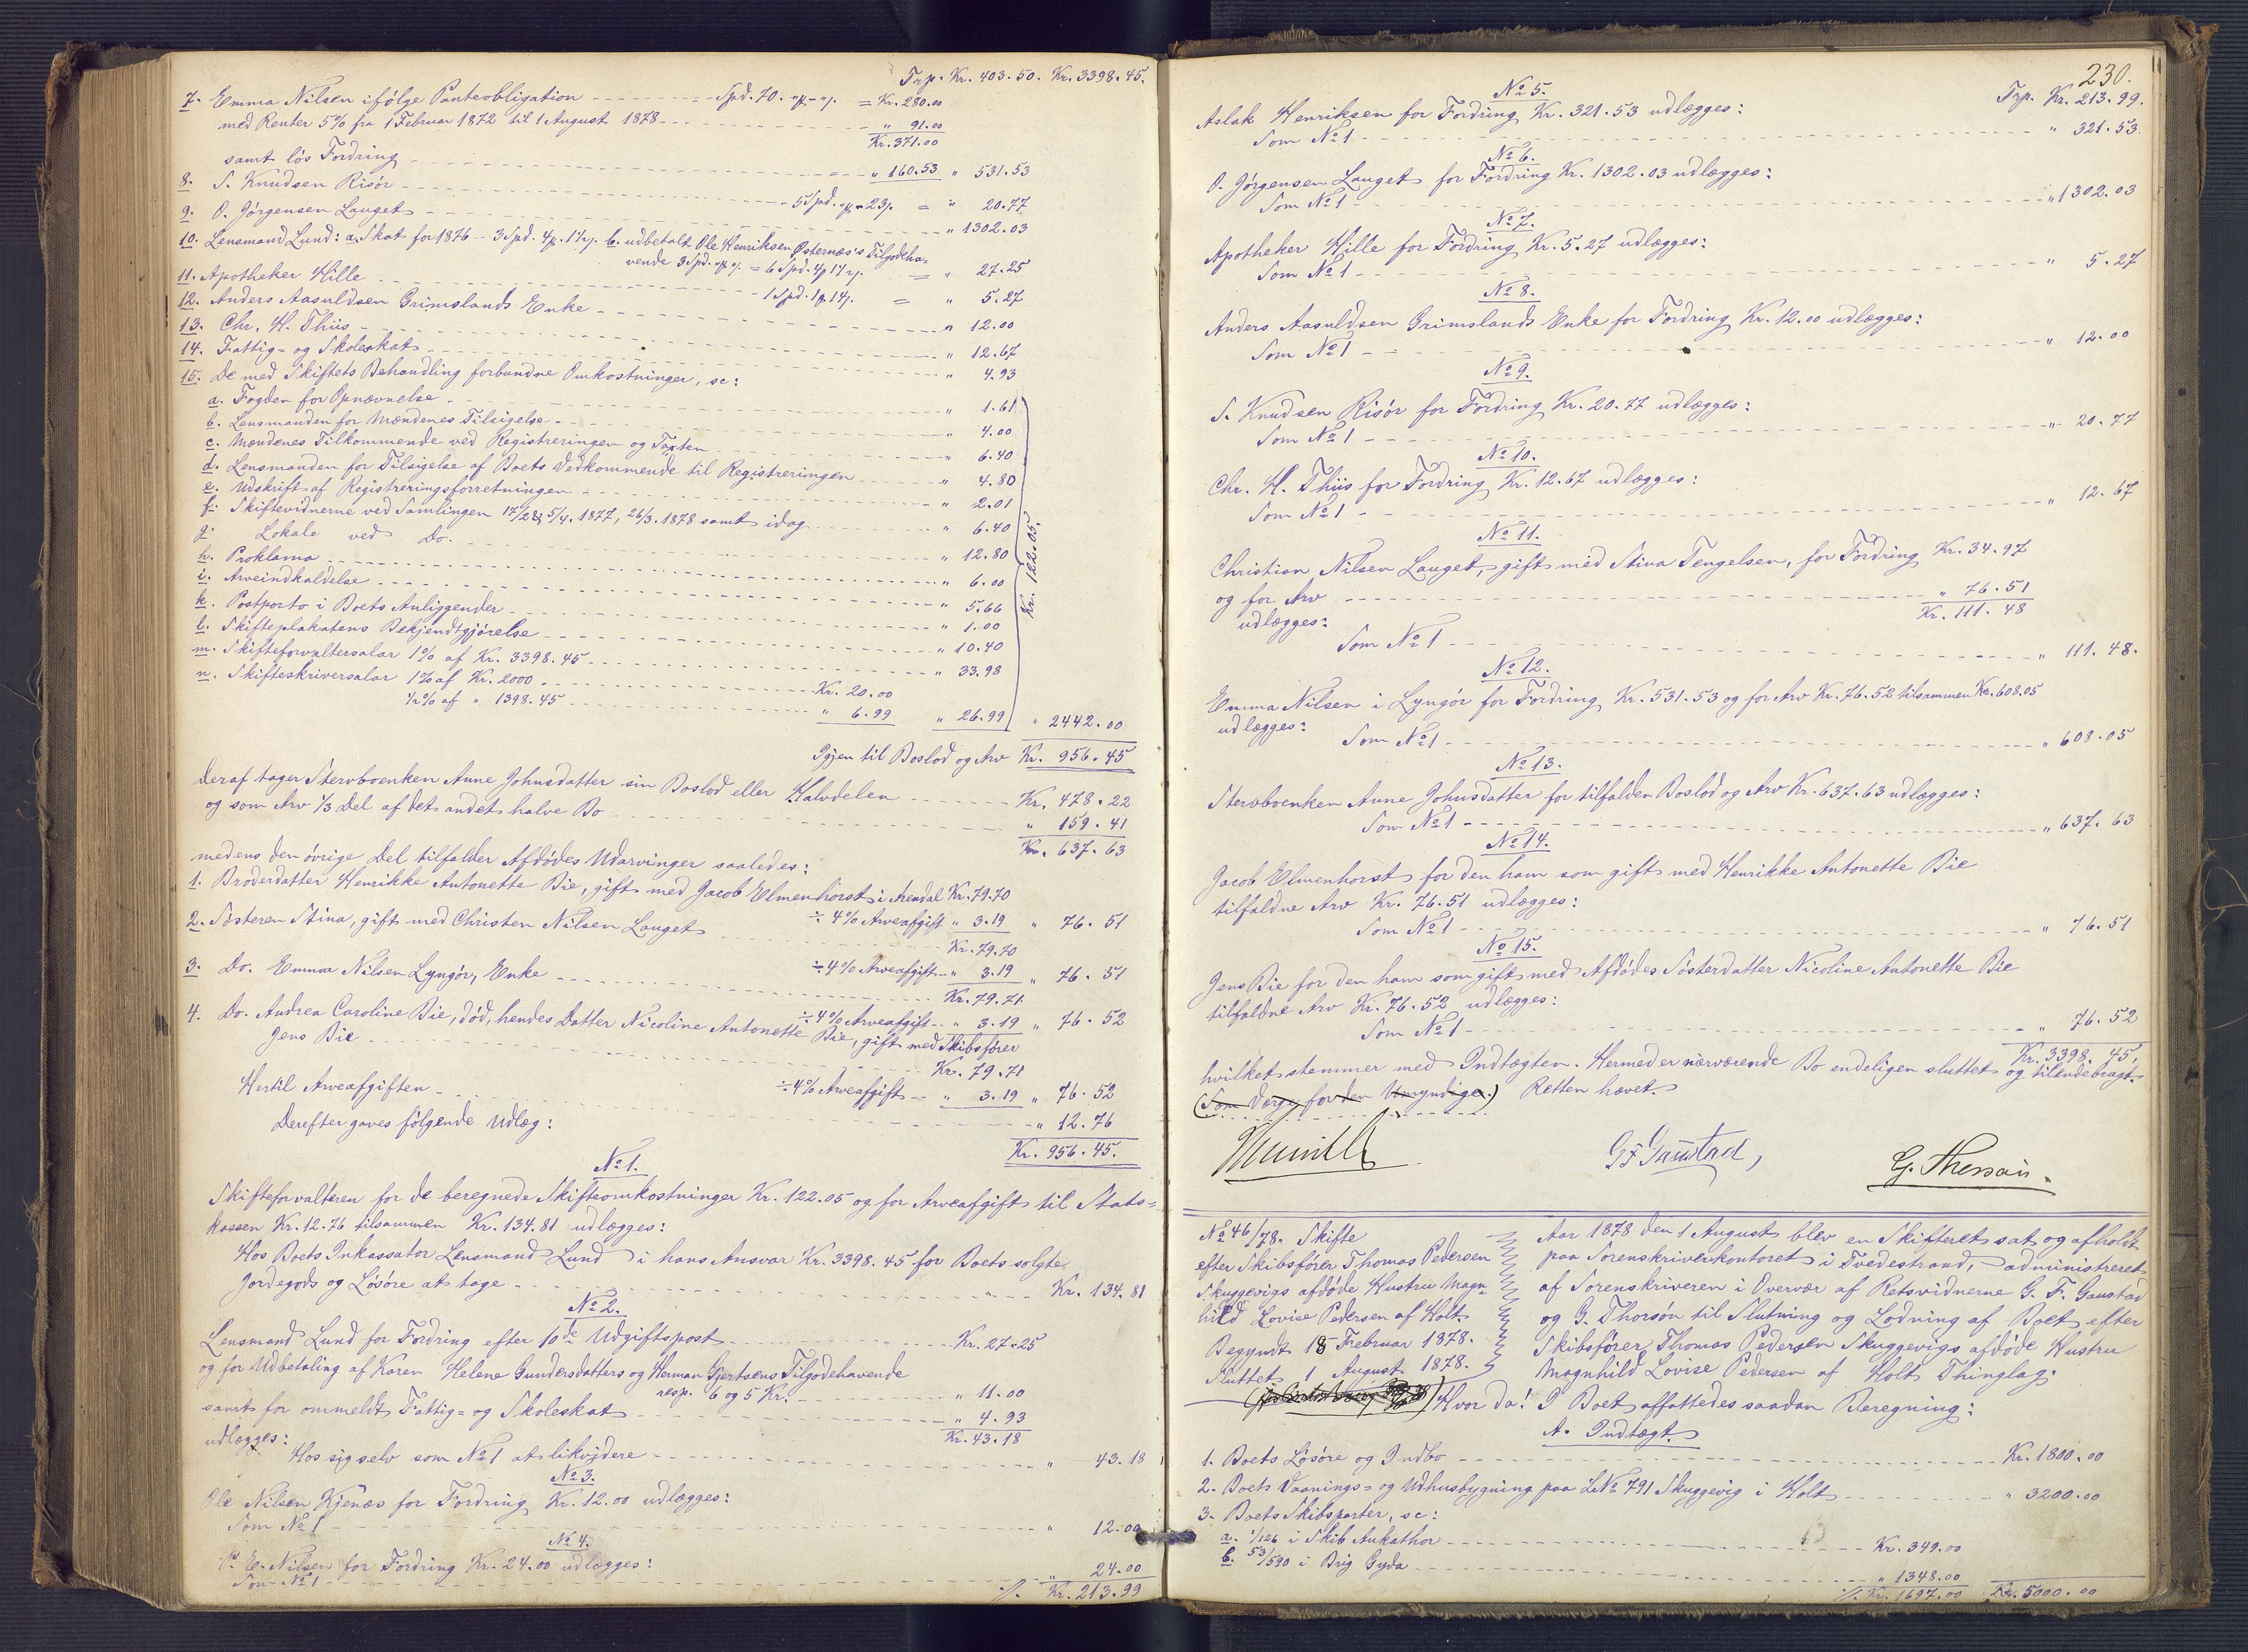 Trp. Kr. 403.50. Kr. 3398.45.
7. Emma Nilsen ifølge Panteobligation - - - Spd. 70. "/. - "/. = Kr. 280.00
med Renter 5% fra 1 Februar 1872 til 1 August 1878 - - - " 91.00
Kr. 371.00
samt løs Fordring - - - " 160.53 " 531.53
8. S. Knudsen Risør - - - 5 Spd. " - 23/. = " 20.77
9. O. Jørgensen Lauget - - - " 1302.03
10. Lensmand Lund: a, Skat for 1876 - 3 Spd. 4/. 17/. b. udbetalt Ole Henriksen Østernæs's Tilgodeha-
vende 3 Spd. " " = 6 Spd. 4/ 17/. = " 27.25
11. Apotheker Hille - - - 1 Spd. 1/. 14/. = " 5.27
12. Anders Aasuldsen Grimslands Enke - - - " 12.00
13. Chr. H. Thiis - - - " 12.67
14. Fattig- og Skoleskat - - - " 4.93
15. De med Skiftets Behandling forbundne Omkostninger, sc:
a. Fogden for Opnævnelse - - - " 1.61
b. Lensmanden for Mændenes Tilsigelse - - - " 4.00
c. Mændenes Tilkommende ved Registreringen og Taxten - - - " 6.40
d. Lensmanden for Tilsigelse af Boets Vedkommende til Registreringen - - - " 4.80
e. Udskrift af Registreringsforretningen - - - " 2.01
f. Skiftevidnerne ved Samlingen 17/2 & 5/4. 1877, 26/3. 1878 samt idag - - - " 6.40
g. Lokale ved Do. - - - " 12.80
h. Proklama - - - " 6.00
i. Arveindkaldelse - - - " 5.66
k. Postporto i Boets Anliggender - - - " 1.00
l. Skifteplakatens Bekjendtgjørelse - - - " 10.40
m. Skifteforvaltersalar 1% af Kr. 3398.45 - - - " 33.98
n. Skifteskriversalar 1% af Kr. 2000 - - - Kr. 20.00
1/2% af " 1398.45 - - - " 6.99 " 26.99 " 2442.00
Kr. 122.05.
Igjen til Boslod og Arv Kr. 956.45
Deraf tager Stervboenken Anne Johnsdatter sin Boslod eller Halvdelen - - - Kr. 478.22
og som Arv 1/3 Del af det andet halve Bo - - - " 159.41
Kr. 637.63
medens den øvrige Del tilfalder Afdødes Udarvinger saaledes:
1. Broderdatter Henrikke Antonette Bie, gift med Jacob Elmenhorst i Arendal Kr. 79.70
÷ 4% Arveafgift " 3.19 " 76.51
2. Søsteren Stina, gift med Christen Nilsen Lauget - - - Kr. 79.70
÷ 4% Arveafgift - " 3.19 " 76.51
3. Do. Emma Nilsen Lyngør, Enke - - - Kr. 79.71
÷ 4% Arveafgift - " 3.19 " 76.52
4. Do. Andrea Caroline Bie, død, hendes Datter Nicoline Antonette Bie, gift med Skibsfører
Jens Bie - - - Kr. 79.71
÷ 4% Arveafgift - " 3.19 " 76.52
Hertil Arveafgiften - - - " 12.76
Kr. 956.45.
Derefter gaves følgende Udlæg:
No 1.
Skifteforvalteren for de beregnede Skifteomkostninger Kr. 122.05 og for Arveafgift til Stats-
kassen Kr. 12.76 tilsammen Kr. 134.81 udlægges:
Hos Boets Inkassator Lensmand Lund i hans Ansvar Kr. 3398.45 for Boets solgte
Jordegods og Løsøre at tage - - - Kr. 134.81
No 2.
Lensmand Lund for Fordring efter 10de Udgiftspost - - - Kr. 27.25
og for Udbetaling af Karen Helene Gundersdatters og Herman Gjertsens Tilgodehavende
resp. 6 og 5 Kr. - - - " 11.00
samt for ommeldt Fattig- og Skoleskat - - - " 4.93
udlægges: Kr. 43.18
Hos sig selv som No 1 at likvidere - - - " 43.18
No 3.
Ole Nilsen Kjenæs for Fordring Kr. 12.00 udlægges:
Som No 1 - - - " 12.00
No 4.
P. E. Nilsen for Fordring Kr. 24.00 udlægges:
Som No 1 - - - " 24.00
./. Kr. 213.99
230.
No 5. Trp. Kr. 213.99.
Aslak Henriksen for Fordring Kr. 321.53 udlægges:
Som No 1 - - - " 321.53.
No 6.
O. Jørgensen Lauget for Fordring Kr. 1302.03 udlægges:
Som No 1 - - - " 1302.03
No 7.
Apotheker Hille for Fordring Kr. 5.27 udlægges:
Som No 1 - - - " 5.27
No 8.
Anders Aasuldsen Grimslands Enke for Fordring Kr. 12.00 udlægges:
Som No 1 - - - " 12.00
No 9.
S. Knudsen Risør for Fordring Kr. 20.77 udlægges:
Som No 1 - - - " 20.77
No 10.
Chr. H. Thiis for Fordring Kr. 12.67 udlægges:
Som No 1 - - - " 12.67
No 11.
Christian Nilsen Lauget, gift med Stina Tengelsen, for Fordring Kr. 34.97
og for Arv - - - " 76.51
udlægges: Kr. 111.48
Som No 1 - - - " 111.48.
No 12.
Emma Nilsen i Lyngør for Fordring Kr. 531.53 og for Arv Kr. 76.52 tilsammen Kr. 608.05
udlægges:
Som No 1 - - - " 608.05
No 13.
Stervboenken Anne Johnsdatter for tilfalden Boslod og Arv Kr. 637.63 udlægges:
Som No 1 - - - " 637.63
No 14.
Jacob Elmenhorst for den ham som gift med Henrikke Antonette Bie
tilfaldne Arv Kr. 76.51 udlægges:
Som No 1 - - - " 76.51
No 15.
Jens Bie for den ham som gift med Afdødes Søsterdatter Nicoline Antonette Bie
tilfaldne Arv Kr. 76.52 udlægges:
Som No 1 - - - " 76.52
Kr. 3398.45,
hvilket stemmer med Indtægten. Hermed er nærværende Bo endeligen sluttet og tilendebragt.
(Som Værge for den Umyndige.) Retten hævet.
G F Gaustad, G. Thorsøn.
No 46/78. Skifte
efter Skibsfører Thomas Pedersen
Skuggevigs afdøde Hustru Magn-
hild Lovise Pedersen af Holt.
Begyndt 18 Februar 1878.
Sluttet 1 August 1878.
Aar 1878 den 1 August blev en Skifteret sat og afholdt
paa Sorenskriverkontoret i Tvedestrand, administreret
af Sorenskriveren i Overvær af Retsvidnerne G. F. Gaustad
og G. Thorsøn til Slutning og Lodning af Boet efter
Skibsfører Thomas Pedersen Skuggevigs afdøde Hustru
Magnhild Lovise Pedersen af Holt Thinglag.
Hvor da! I Boet affattedes saadan Beregning:
A. Indtægt.
1. Boets Løsøre og Indbo - - - Kr. 1800.00
2. Boets Vaanings- og Udhusbygning paa LNo 791 Skuggevig i Holt - - - " 3200.00
3. Boets Skibsparter, sc:
a. 1/126 i Skib Aukathor - - - Kr. 349.00
b. 53/590 i Brig Gyda - - - " 1348.00
./. Kr. 1697.00 Kr. 5000.00